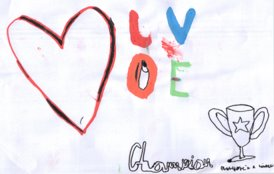 LV
OE
Champion